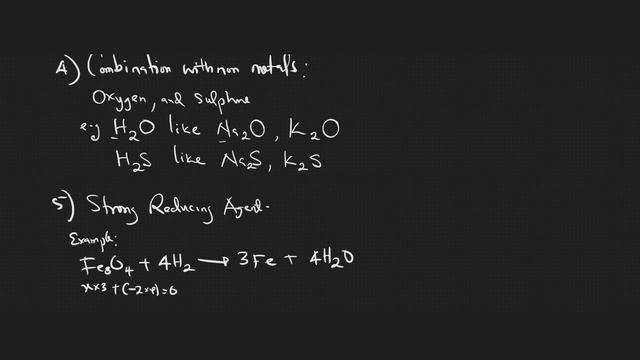 4) Combination with non metals:
Oxygen, and sulphur
e.g H₂O like Na₂O, K₂O
H₂S like Na₂S, K₂S
5) Strong Reducing Agent.
Example:
Fe₃O₄ + 4H₂ ⟶ 3Fe + 4H₂O
x×3 + (-2×4) = 0